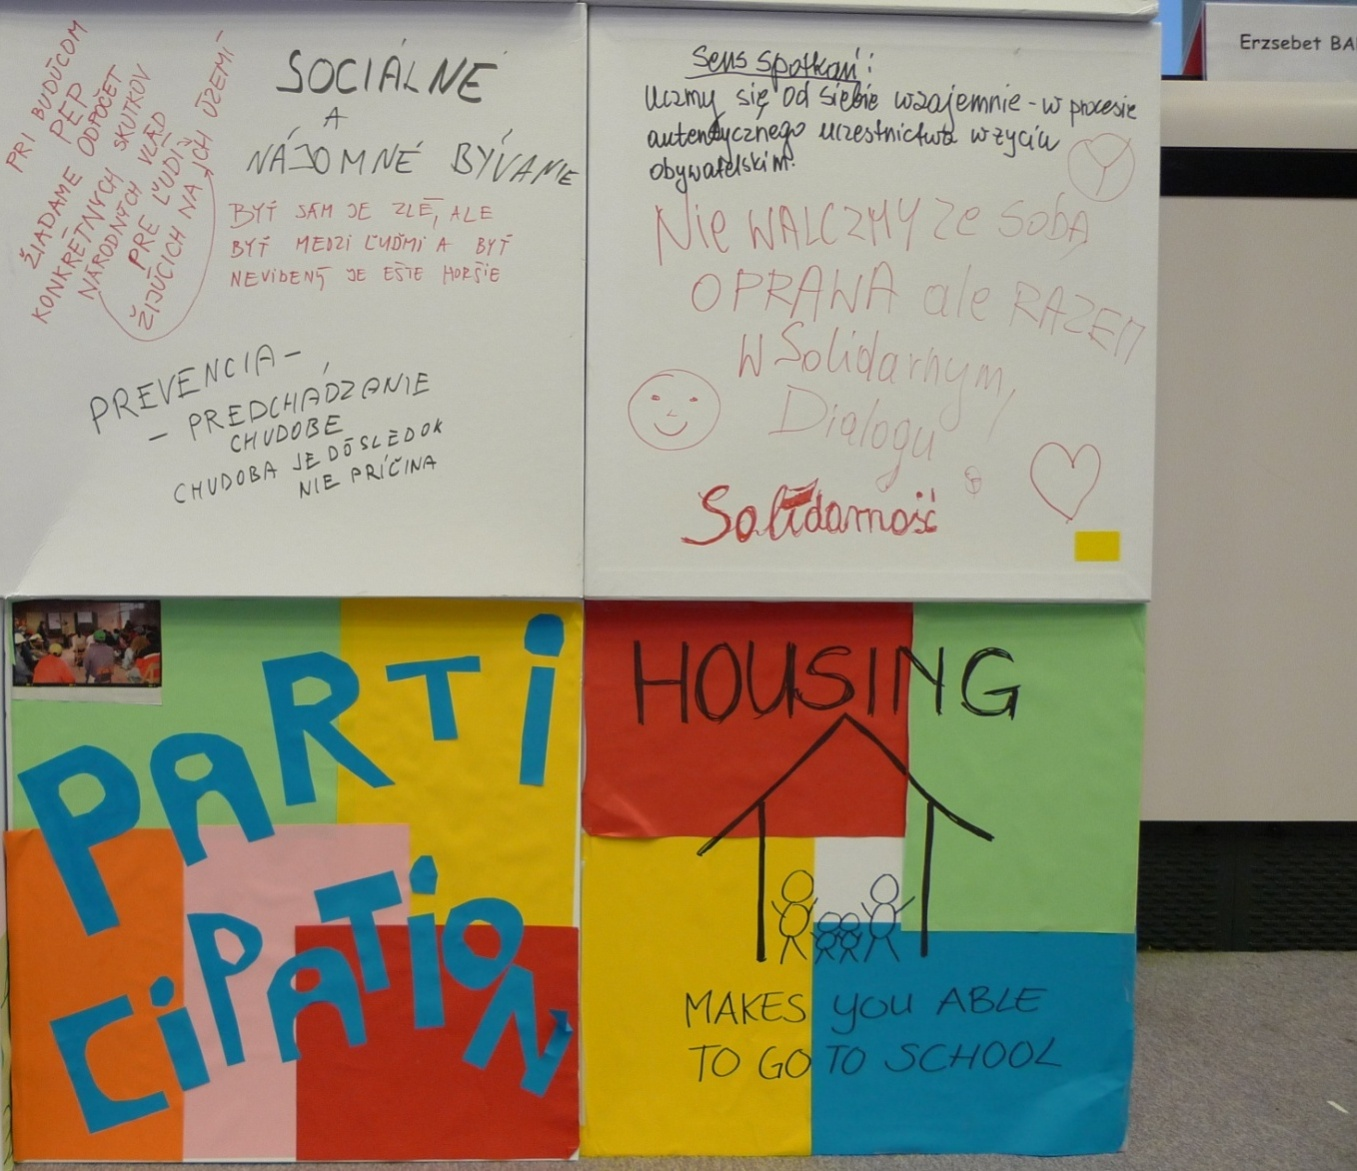 PRI BUDÚCOM
PEP
ŽIADAME ODPOČET
KONKRÉTNYCH SKUTKOV
NÁRODNÝCH VLÁD
PRE ĽUDÍ
ŽIJÚCICH NA ICH ÚZEMÍ
SOCIÁLNE
A
NÁJOMNÉ BÝVANIE
BYŤ SÁM JE ZLÉ, ALE
BYŤ MEDZI ĽUĎMI A BYŤ
NEVIDENÝ JE EŠTE HORŠIE
PREVENCIA -
- PREDCHÁDZANIE
CHUDOBE
CHUDOBA JE DÔSLEDOK
NIE PRÍČINA
Sens spotkań:
Uczmy się od siebie wzajemnie - w procesie
autentycznego uczestnictwa w życiu
obywatelskim.
Nie WALCZMY ze SOBĄ
O PRAWA ale RAZEM
W Solidarnym
Dialogu
Solidarność
Erzsebet BA
PARTI
CiPATiON
HOUSING
MAKES YOU ABLE
TO GO TO SCHOOL